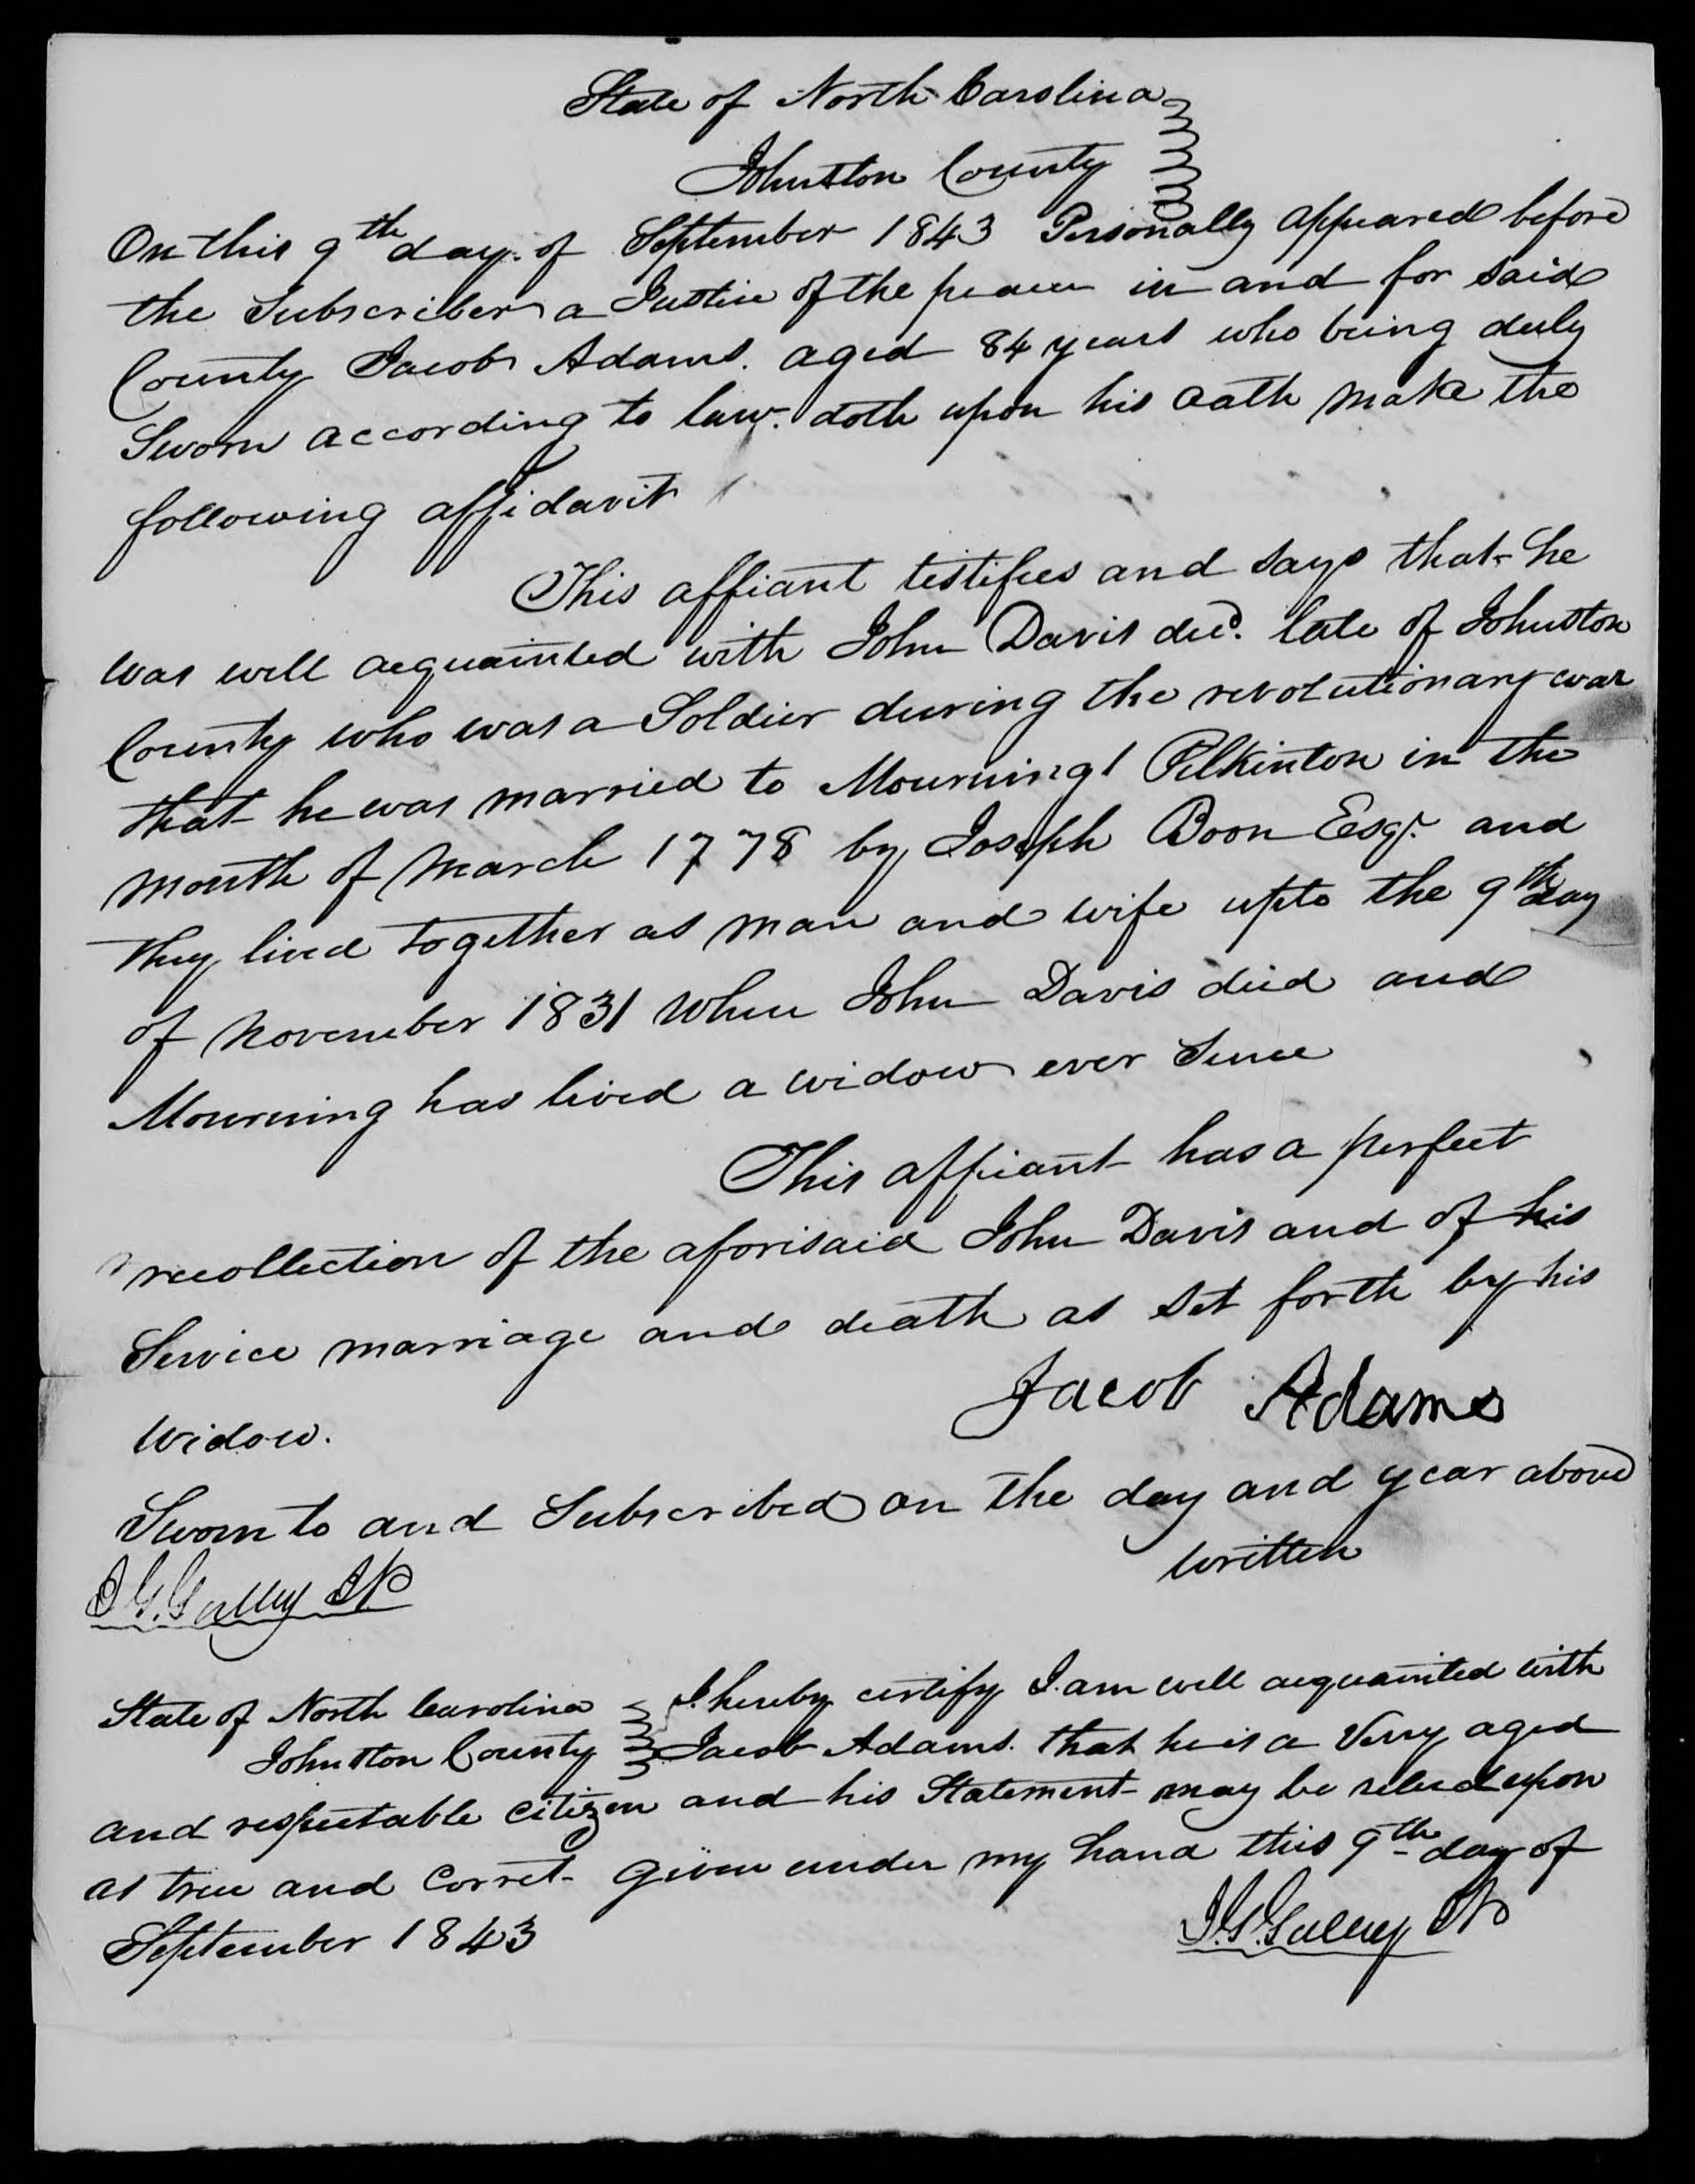 State of North Carolina
Johnston County
On this 9th day of September 1843 Personally appeared before
the Subscriber a Justice of the peace in and for said
County Jacob Adams. aged 84 years who being duly
Sworn according to law doth upon his oath make the
following affidavit
This affiant testifies and says that he
was well acquainted with John Davis decd. late of Johnston
County who was a Soldier during the revolutionary war
that he was married to Mourning Pilkinton in the
month of March 1778 by Joseph Boon Esqr. and
they lived together as man and wife upto the 9th day
of November 1831 When John Davis died and
Mourning has lived a widow ever Since
This affiant has a perfect
recollection of the aforisaid John Davis and of his
Service marriage and death as set forth by his
widow.
Jacob Adams
Sworn to and Subscribed on the day and year above
written
J.G. Gulley JP
State of North Carolina I hereby certify I am well acquainted with
Johnston County Jacob Adams. that he is a Very aged
and respectable citizen and his Statement may be relied upon
as true and Corret- given under my hand this 9th day of
September 1843
J.G. Gulley JP